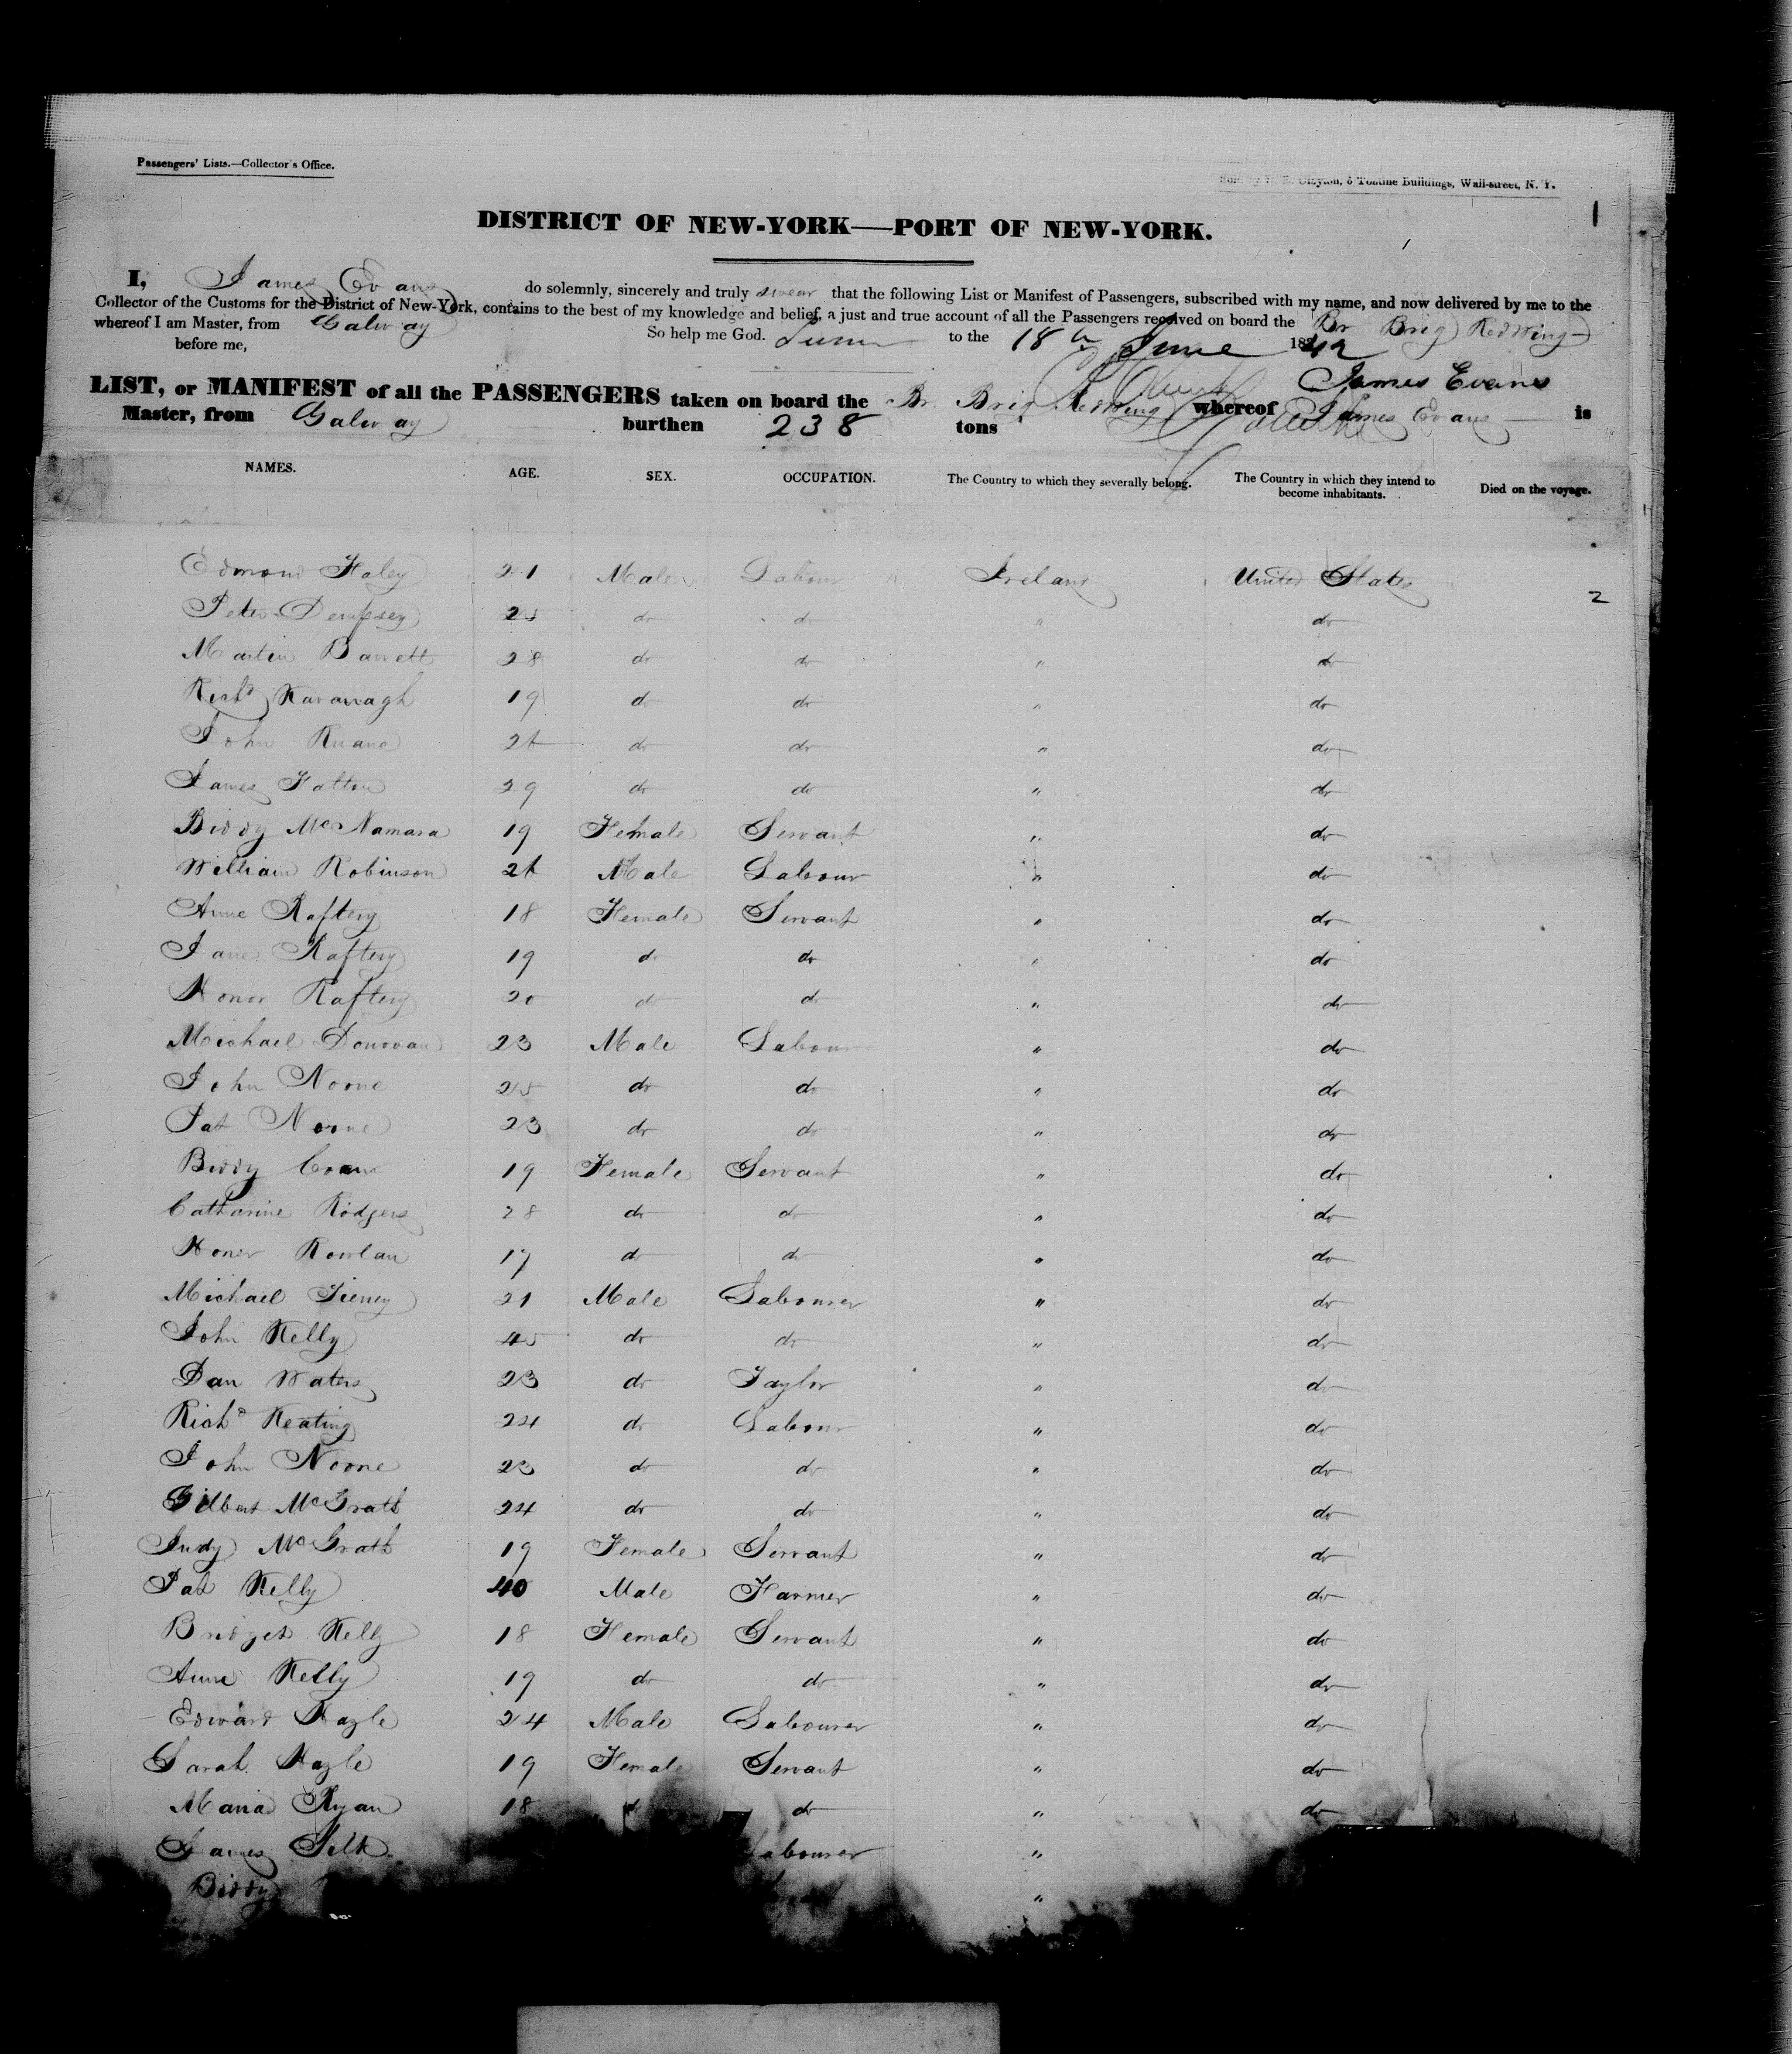 Passengers' Lists.—Collector's Office.
Clayton, 6 Tontine Buildings, Wall-street, N. Y.
1
DISTRICT OF NEW-YORK—PORT OF NEW-YORK.
I, James Evans do solemnly, sincerely and truly swear that the following List or Manifest of Passengers, subscribed with my name, and now delivered by me to the
Collector of the Customs for the District of New-York, contains to the best of my knowledge and belief, a just and true account of all the Passengers received on board the Br Brig Redwing
whereof I am Master, from Galway
So help me God. to the 18 June 1842
before me,
James Evans
LIST, or MANIFEST of all the PASSENGERS taken on board the Br. Brig Redwing whereof James Evans is
Master, from Galway burthen 238 tons
NAMES. AGE. SEX. OCCUPATION. The Country to which they severally belong. The Country in which they intend to become inhabitants. Died on the voyage.
Edmond Haley 21 Male Labour Ireland United States
2
Peter Dempsey 25 do do " do
Martin Barrett 28 do do " do
Richd Kavanagh 19 do do " do
John Ruane do do " do
James Fallon 29 do do " do
Biddy McNamara 19 Female Servant " do
William Robinson Male Labour " do
Anne Raftery 18 Female Servant " do
Jane Raftery 19 do do " do
Honor Raftery 20 do do " do
Michael Donovan 23 Male Labour " do
John Noone 25 do do " do
Pat Noone 23 do do " do
Biddy 19 Female Servant " do
Catharine Rodgers 28 do do " do
Honor Rowlan 17 do do " do
Michael Tierney 21 Male Labourer " do
John Kelly 45 do do " do
Dan Waters 23 do Taylor " do
Richd Keating 24 do Labour " do
John Noone 23 do do " do
Gilbert McGrath 24 do do " do
Judy McGrath 19 Female Servant " do
Pat Kelly 40 Male Farmer " do
Bridget Kelly 18 Female Servant " do
Anne Kelly 19 do do " do
Edward 24 Male Labourer " do
Sarah 19 Female Servant " do
Maria Ryan 18 do " do
James Silk abourer "
Biddy "